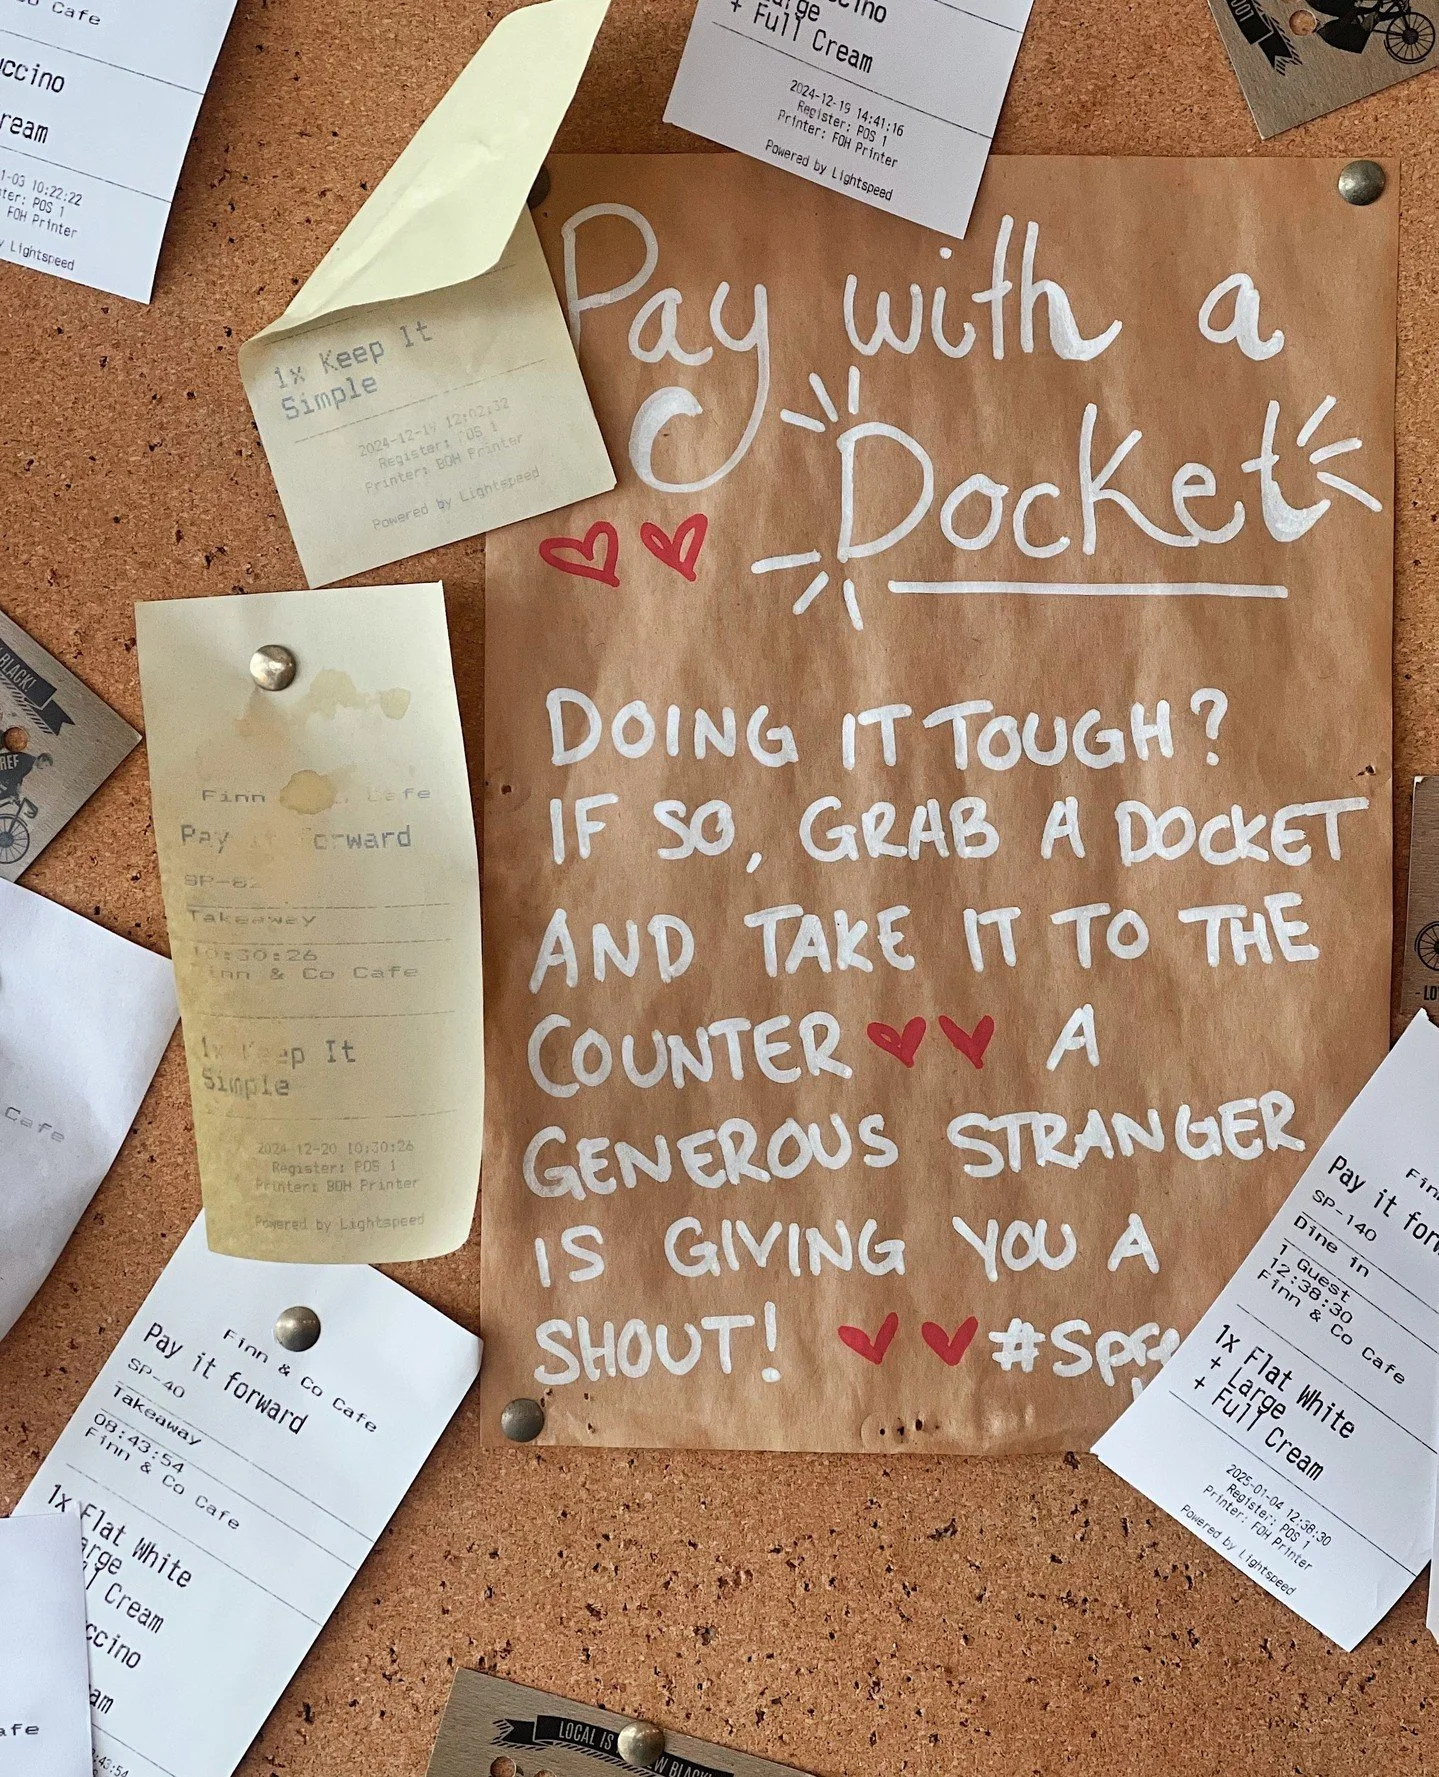 Cafe
ccino
ream
1-03 10:22:22
ter: POS 1
FOH Printer
y Lightspeed
ccino
Large
+ Full Cream
2024-12-19 14:41:16
Register: POS 1
Printer: FOH Printer
Powered by Lightspeed
Pay with a
Docket
DOING IT TOUGH?
IF SO, GRAB A DOCKET
AND TAKE IT TO THE
COUNTER A
GENEROUS STRANGER
IS GIVING YOU A
SHOUT! #Spre
1x Keep It
Simple
2024-12-19 12:02:32
Register: POS 1
Printer: BOH Printer
Powered by Lightspeed
BLACK!
REF
Finn Cafe
Pay it orward
SP-82
Takeaway
10:30:26
Finn & Co Cafe
1x Keep It
Simple
2024-12-20 10:30:26
Register: POS 1
Printer: BOH Printer
Powered by Lightspeed
Cafe
Finn & Co Cafe
Pay it forward
SP-40
Takeaway
08:43:54
Finn & Co Cafe
1x Flat White
arge
l Cream
ccino
am
:43:54
afe
Finn
Pay it forw
SP-140
Dine in
1 Guest
12:38:30
Finn & Co Cafe
1x Flat White
+ Large
+ Full Cream
2025-01-04 12:38:30
Register: POS 1
Printer: FOH Printer
Powered by Lightspeed
- LO
LOCAL IS W BLACK!